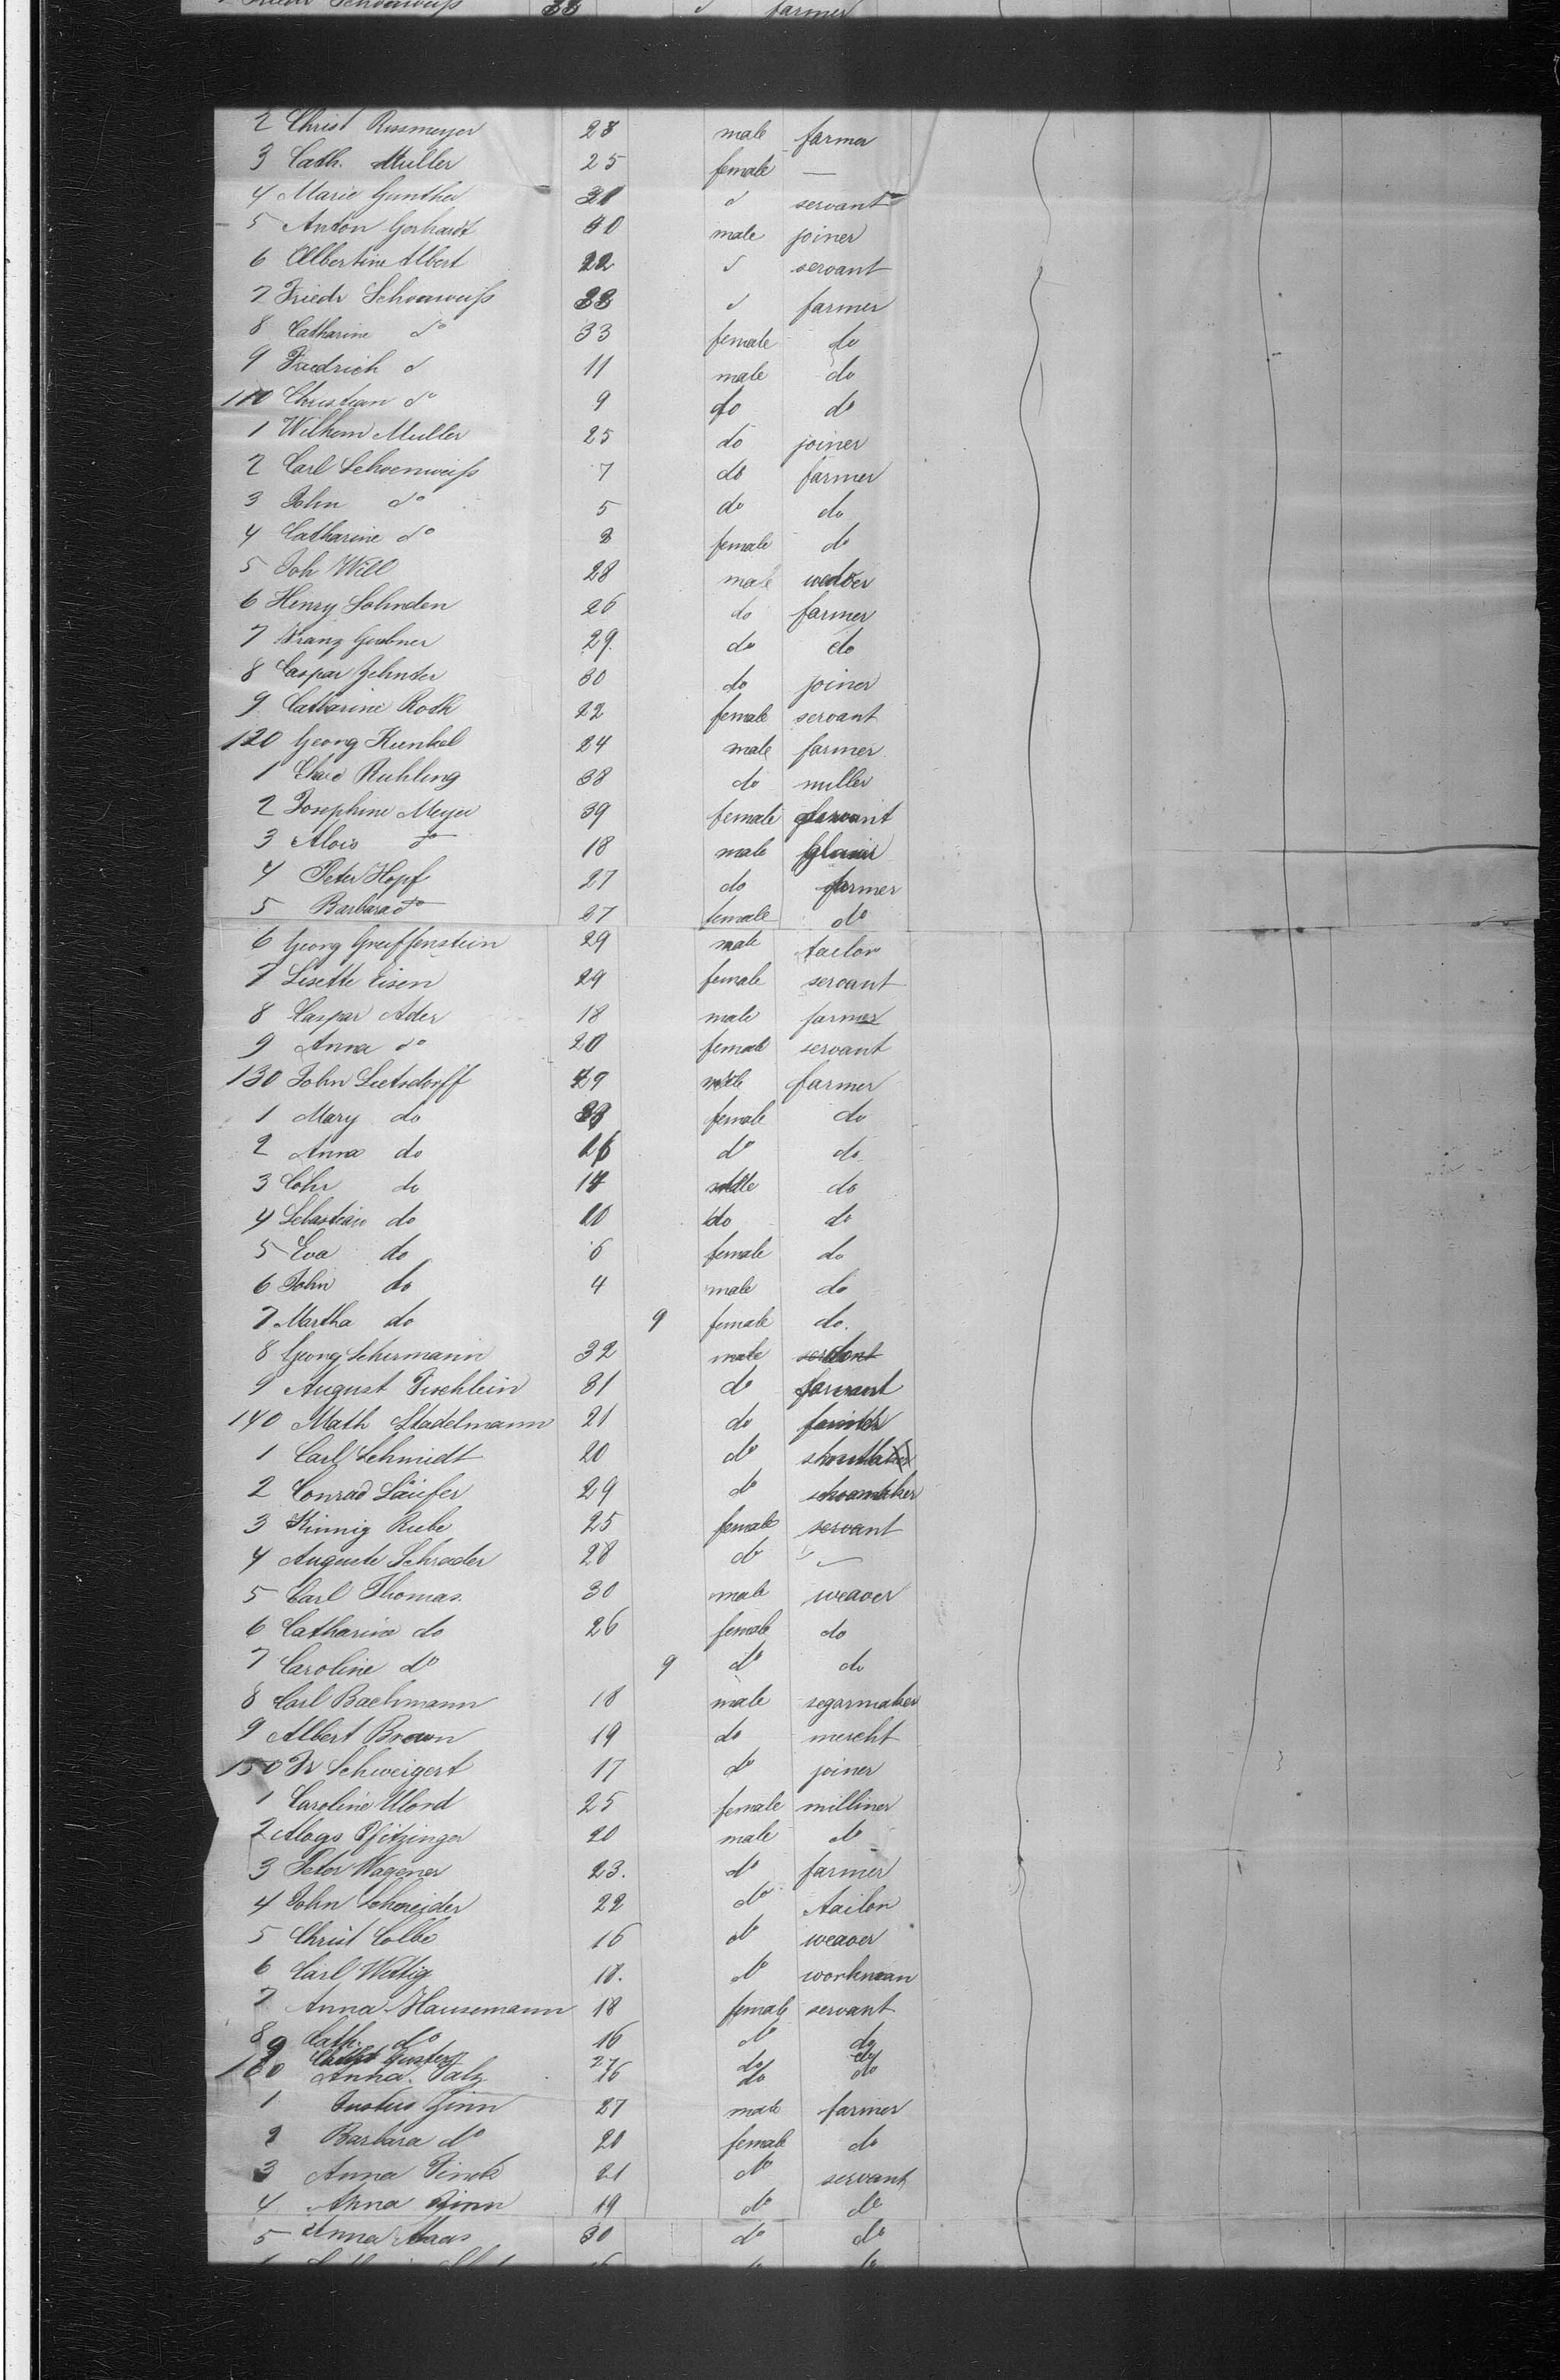 Friedr Schoenweiss 33 d farmer
2 Christ Russmeyer 28 male farmer
3 Cath. Muller 25 female —
4 Marie Gunther d servant
5 Anton Gerhardt male joiner
6 Albertine Albert 22 d servant
7 Friedr Schoenweiss 33 d farmer
8 Catharine do 33 female do
9 Friedrich d 11 male do
110 Christian do 9 do do
1 Wilhem Muller 25 do joiner
2 Carl Schoenweiss 7 do farmer
3 John do 5 do do
4 Catharine do female do
5 Joh Will 28 male
6 Henry Sohnden 26 do farmer
7 Franz Guebner 29. do do
8 Caspar Zehnter 30 do joiner
9 Catharine Roth 22 female servant
120 Georg Kunkel 24 male farmer
1 Ruhling 38 do miller
2 Josephine Meyer 39 female servant
3 Alois do 18 male
4 Peter Hopf 27 do farmer
5 Barbara do 27 female do
6 Georg Greiffenstein 29 male tailor
7 Lisette Eisen 29 female servant
8 Caspar Ader 18 male farmer
9 Anna do 20 female servant
130 John Luetsdorff male farmer
1 Mary do female do
2 Anna do do do
3 do do
4 Sebastian do 10 do do
5 Eva do 6 female do
6 John do 4 male do
7 Martha do 9 female do.
8 Georg Schirmann 32 male
9 August Fischlein 31 do
140 Math Stadelmann 21 do
1 Carl Schmidt 20 do
2 Conrad Läufer 29 do
3 Rube 25 female servant
4 Auguste Schrader 28 do
5 Carl Thomas 30 male weaver
6 Catharine do 26 female do
7 Caroline do 9 do do
8 Carl Bachmann 18 male segarmaker
9 Albert Brown 19 do mercht
150 Fr Schweigert 17 do joiner
1 Caroline Ulond 25 female milliner
2 Aloys Pfitzinger 20 male do
3 Peter Wagener 23. do farmer
4 John Schneider 22 do tailor
5 Christ Colbe 16 do weaver
6 Carl Wettig 18. do workman
7 Anna Hausemann 18 female servant
8 Cath. do 16 do do
9 27 do do
160 Anna Salz 16 do do
1 Justus Zinn 27 male farmer
2 Barbara do 20 female do
3 Anna Finck 21 do servant
4 Anna Zinn 19 do do
5 Anna Maas 30 do do